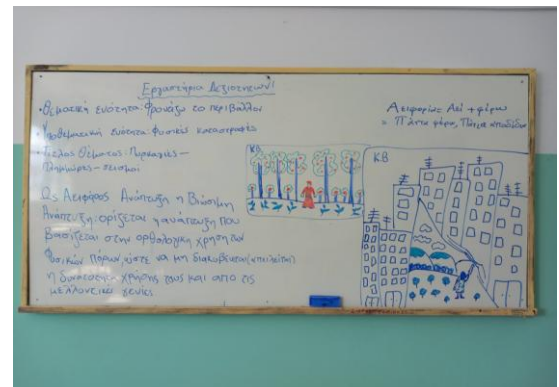 Εργαστήρια Δεξιοτήτων
• Θεματική ενότητα: Φροντίζω το περιβάλλον
Υποθεματική ενότητα: Φυσικές καταστροφές
Τίτλος Θέματος: Πυρκαγιές -
Πλημμύρες - σεισμοί
Ως Αειφόρος Ανάπτυξη ή Βιώσιμη
Ανάπτυξη: ορίζεται η ανάπτυξη που
βασίζεται στην ορθολογική χρήση των
Φυσικών Πόρων, ώστε να μη διακυβεύεται
η δυνατότητα χρήσης τους και από τις
μελλοντικές γενιές
Αειφορία: Αεί + φέρω
= Πάντα φέρω, Πάντα αποδίδω
ΚΒ
ΚΒ